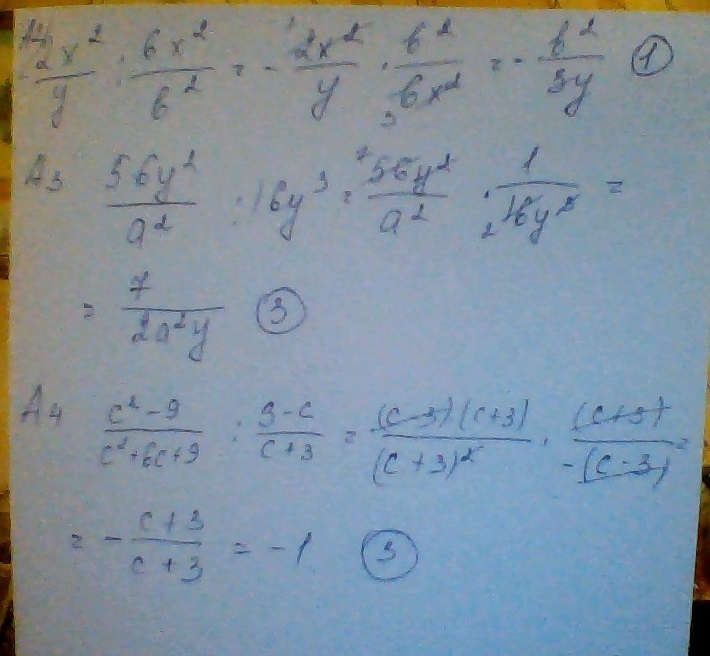 -2x²/y : 6x²/b² = - 2x²/y · b²/6x² = - b²/3y 1
A3 56y²/a² : 16y³ = 56y²/a² · 1/16y³ =
= 7/2a²y 3
A4 c²-9/c²+6c+9 : 3-c/c+3 = (c-3)(c+3)/(c+3)² · (c+3)/-(c-3) =
= - c+3/c+3 = -1 3